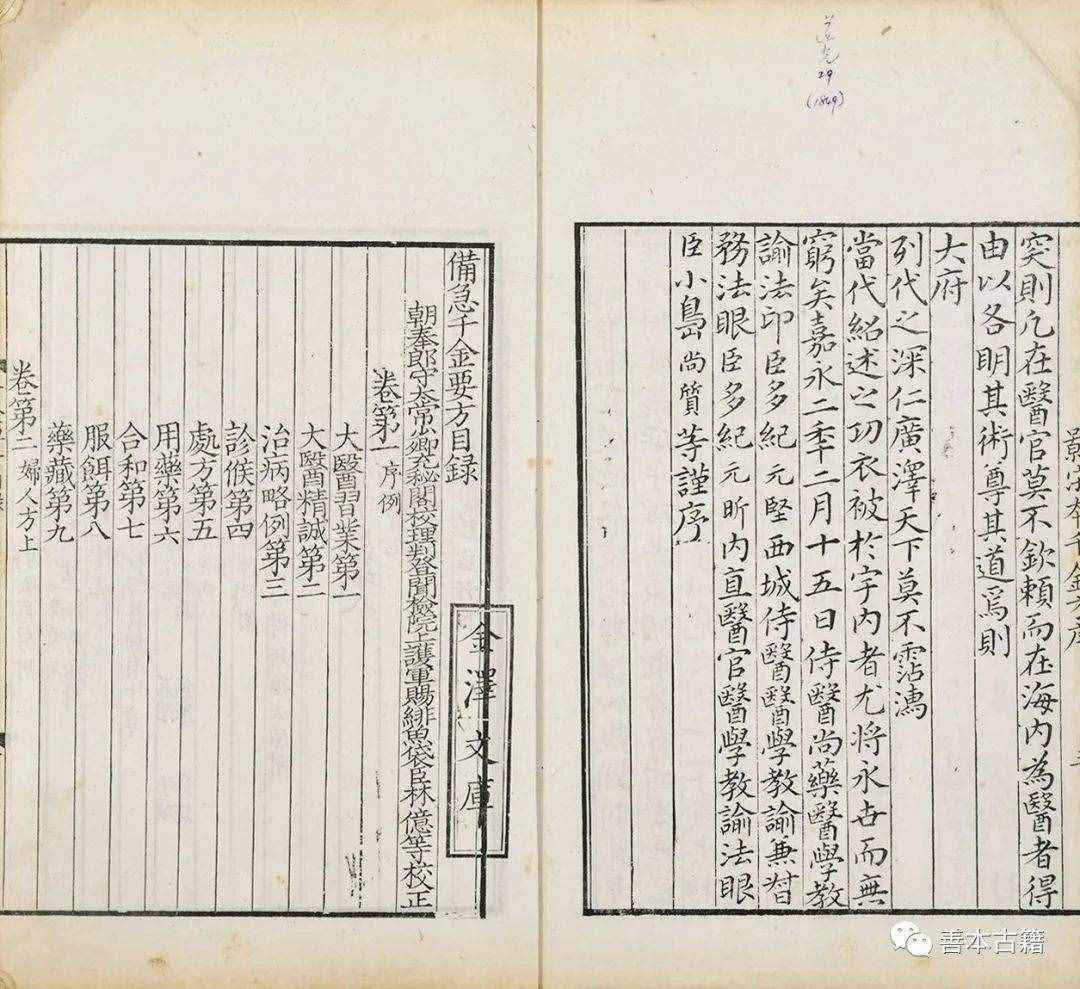 道光
29
(1849)
突則凡在醫官莫不欽賴而在海内為醫者得
由以各明其術尊其道爲則
大府
列代之深仁廣澤天下莫不霑濡
當代紹述之功衣被於宇内者尤將永古而無
窮矣嘉永二年二月十五日侍醫尚藥醫學教
諭法印臣多紀元堅西城侍醫醫學教諭兼督
務法眼臣多紀元昕内直醫官醫學教諭法眼
臣小島尚質等謹序
備急千金要方目録
朝奉郎守太常少卿充秘閣校理判登聞檢院上護軍賜緋魚袋臣林億等校正
卷第一 序例
大醫習業第一
大醫精誠第二
治病略例第三
診候第四
處方第五
用藥第六
合和第七
服餌第八
藥藏第九
卷第二 婦人方上
金澤文庫
善本古籍